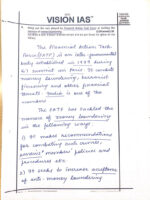 VISION IAS
The Financial Action Task
Force (FATF) is an inter-governmental
body established in 1989 during
G7 summit in Paris to combat
money laundering, terrorist
financing and other financial
threats. India is one of the
members.
The FATF has tackled the
menace of money laundering
in the following ways
1) It makes recommendations
for combating such crimes,
reviews members' policies and
procedures etc.
2) It seeks to increase acceptance
of anti-money laundering